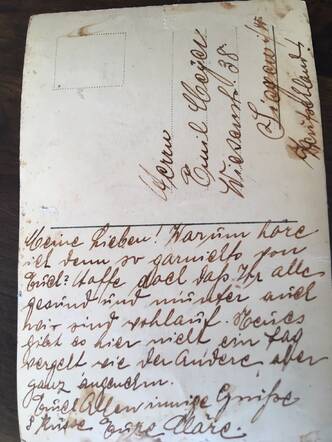 Herrn
Emil Meyer
Wiesenstr. 38
Deutschland!
Meine Lieben! Warum höre
ich denn so garnichts von
Euch? Hoffe doch daß Ihr alle
gesund und munter auch
wir sind wohlauf. Neues
gibt es hier nicht ein Tag
vergeht wie der Andere aber
ganz angenehm.
Euch Allen innige Grüße
& Küsse Eure Kläre.